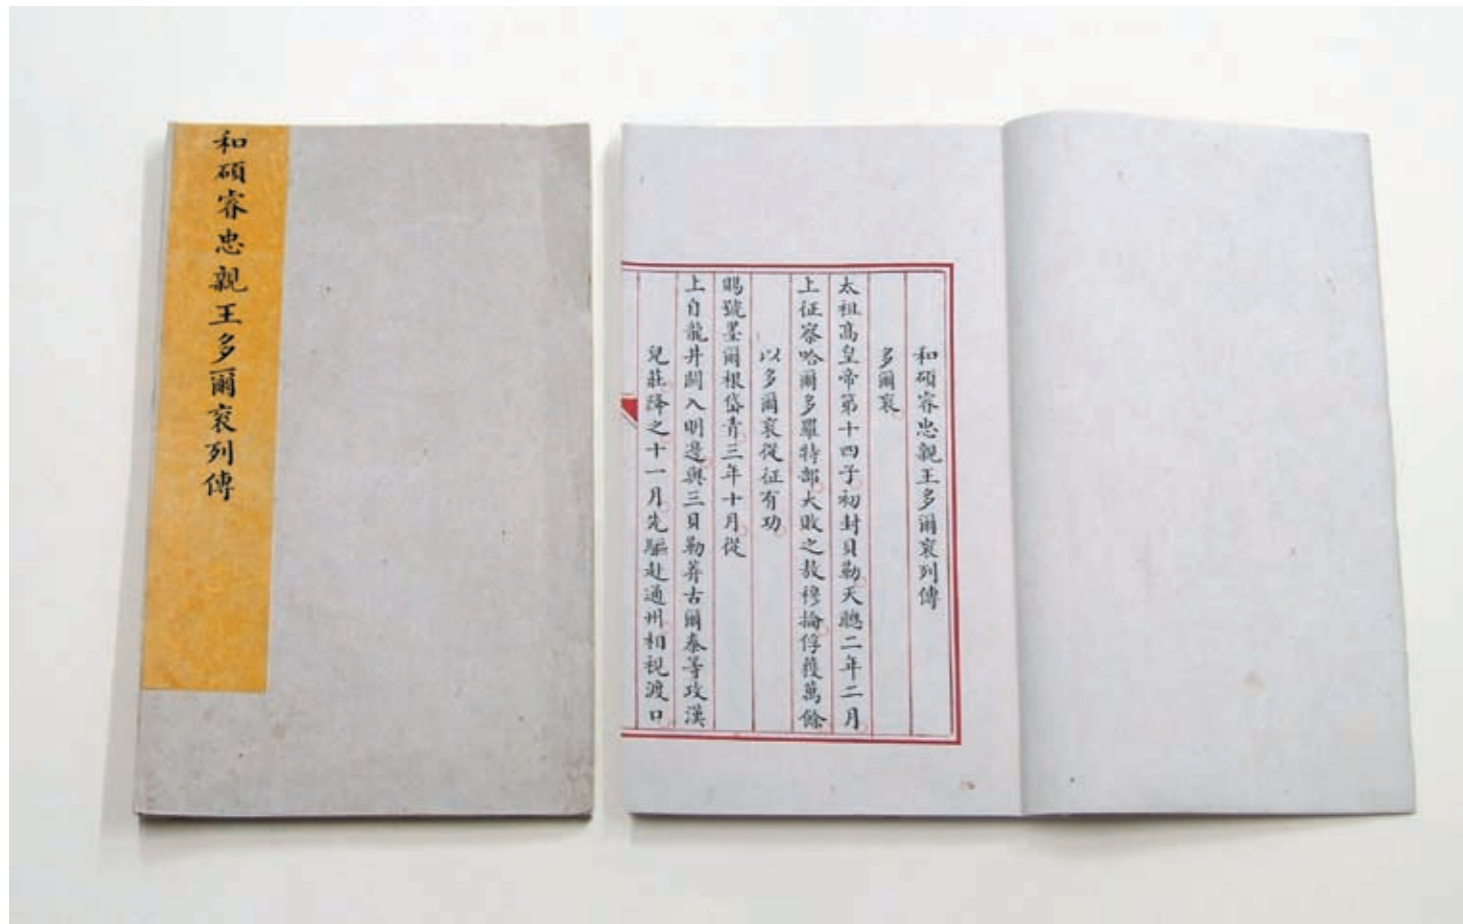 和碩睿忠親王多爾袞列傳
和碩睿忠親王多爾袞列傳
多爾袞
太祖高皇帝第十四子初封貝勒天聰二年二月
上征察哈爾多羅特部大敗之敖穆掄俘獲萬餘
以多爾袞從征有功
賜號墨爾根岱青三年十月從
上自龍井關入明邊與三貝勒莽古爾泰等攻漢
兒莊降之十一月先驅赴通州相視渡口